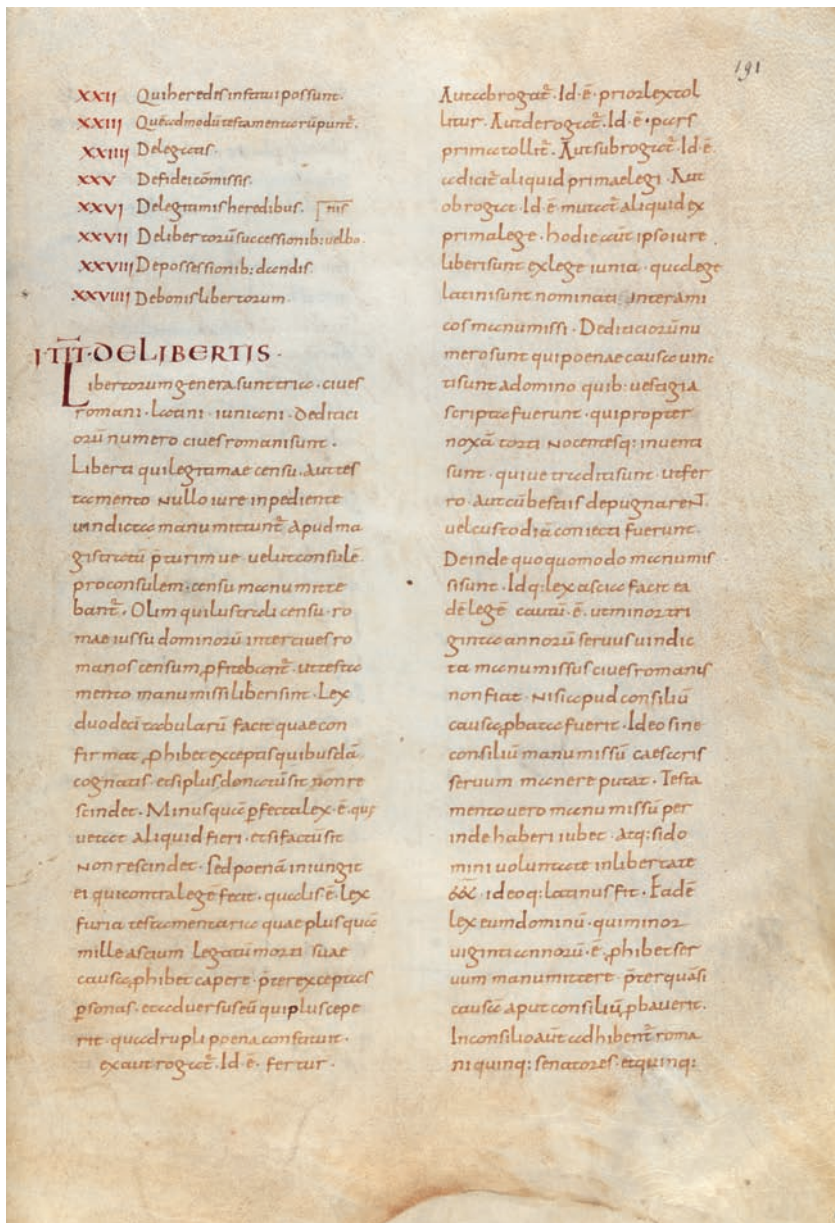 191
XXII Qui heredes instatui possunt.
XXIII Queadmodū testamenta rūpunt̄.
XXIIII De legatis.
XXV De fideicōmissis.
XXVI De legitimis heredibus. nis
XXVII De libertorū successionib: uel bo.
XXVIII De possessionib: dandis.
XXVIIII De bonis libertorum.
I. TIT. DE LIBERTIS.
Libertorum genera sunt tria. ciues
romani. latini iuniani. dediticī
orū numero ciues romani sunt.
Liberti qui legitimae censu. aut tes
tamento nullo iure inpediente
uindicta manumittunt̄ apud ma
gistratū p̄turim ue uelut consulē
proconsulem. censu manumitte
bant̄. Olim qui lustrali censu. ro
mae iussu dominorū inter ciues ro
manos censum ꝓfitebant̄. ut testa
mento manumissi liberi sint. Lex
duodeci tabularū facit quae con
firmat, ꝓhibet exceptis quibusdā
cognatis. et si plus donatū sit non re
scindet. Minus quā ꝑfecta lex. ē. quę
uetat aliquid fieri. et si factū sit
non rescindet. sed poenā iniungit
ei qui contra legē fecit. qualis ē. lex
furia testamentaria quae plus quā
mille assium legatū mortis suae
causa ꝓhibet capere p̄ter exceptas
ꝑsonas. et aduersus eū qui plus cepe
rit. quadrupli poena constituit.
ex aut rogat̄. Id. ē. fertur.
Aut abrogat̄. Id. ē. prior lex tol
litur. Aut derogat̄. Id. ē. pars
prima tollit̄. Aut subrogat̄. Id. ē
adicit̄ aliquid prima elegi. Aut
obrogat̄ Id. ē mutat̄ aliquid ex
prima lege. hodie aūt ipso iure
liberi sunt ex lege iunia. qua lege
latini sunt nominati. inter ami
cos manumissi. Dediticiorū nu
mero sunt qui poenae causa uinc
ti sunt a domino quib: uestigia
scripta fuerunt. qui propter
noxā torti nocentesq: inuenti
sunt. qui ue traditi sunt ut fer
ro. aut cū bestiis depugnarent.
uel custodiā coniecti fuerunt.
Deinde quoquo modo manumis
si sunt. Idq: lex ascia facit ea
dē legē cautū. ē. ut minor tri
ginta annorū seruus uindic
ta manumissus ciues romanus
non fiat. nisi apud consiliū
causa ꝓbata fuerit. Ideo sine
consiliū manumissū caesaris
seruum manere putat. Testa
mento uero manumissū per
inde haberi iubet. Atq: si do
mini uoluntate in libertate
ideoq: latinus fit. Eadē
lex eum dominū. qui minor
uiginti annorū. ē. ꝓhibet ser
uum manumittere p̄ter quā si
causā aput consiliū ꝓbauerit.
In consilio aūt adhibent̄ roma
ni quinq: senatores. et quinq: